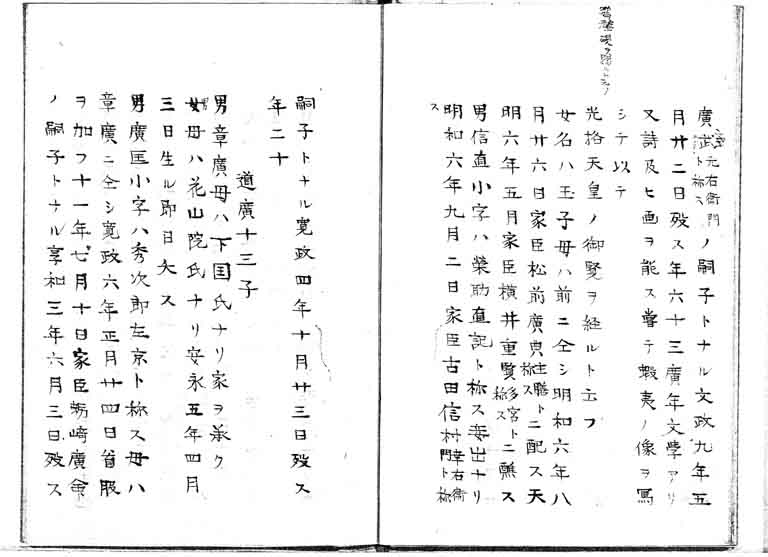 廣武元右衛門ト称スノ嗣子トナル文政九年五
月廿二日歿ス年六十三廣年文學アリ
又詩及ヒ画ヲ能ス嘗テ蝦夷ノ像ヲ寫
シテ以テ
光格天皇ノ御覧ヲ経ルト云フ
女名ハ玉子母ハ前ニ仝シ明和六年八
月廿六日家臣松前廣典主膳ト称スニ配ス天
明六年五月家臣横井重賢多宮ト称スニ醮ス
男信直小字ハ榮助直記ト称ス妾出ナリ
明和六年九月二日家臣古田信村幸右衛門ト称ス
嗣子トナル寛政四年十月廿三日歿ス
年二十
道廣十三子
男章廣母ハ下国氏ナリ家ヲ承ク
女母ハ花山院氏ナリ安永五年四月
三日生ル即日夭ス
男廣匡小字ハ秀次郎左京ト称ス母ハ
章廣ニ仝シ寛政六年正月廿四日首服
ヲ加フ十一年七月十日家臣蛎崎廣
ノ嗣子トナル享和三年六月三日歿ス